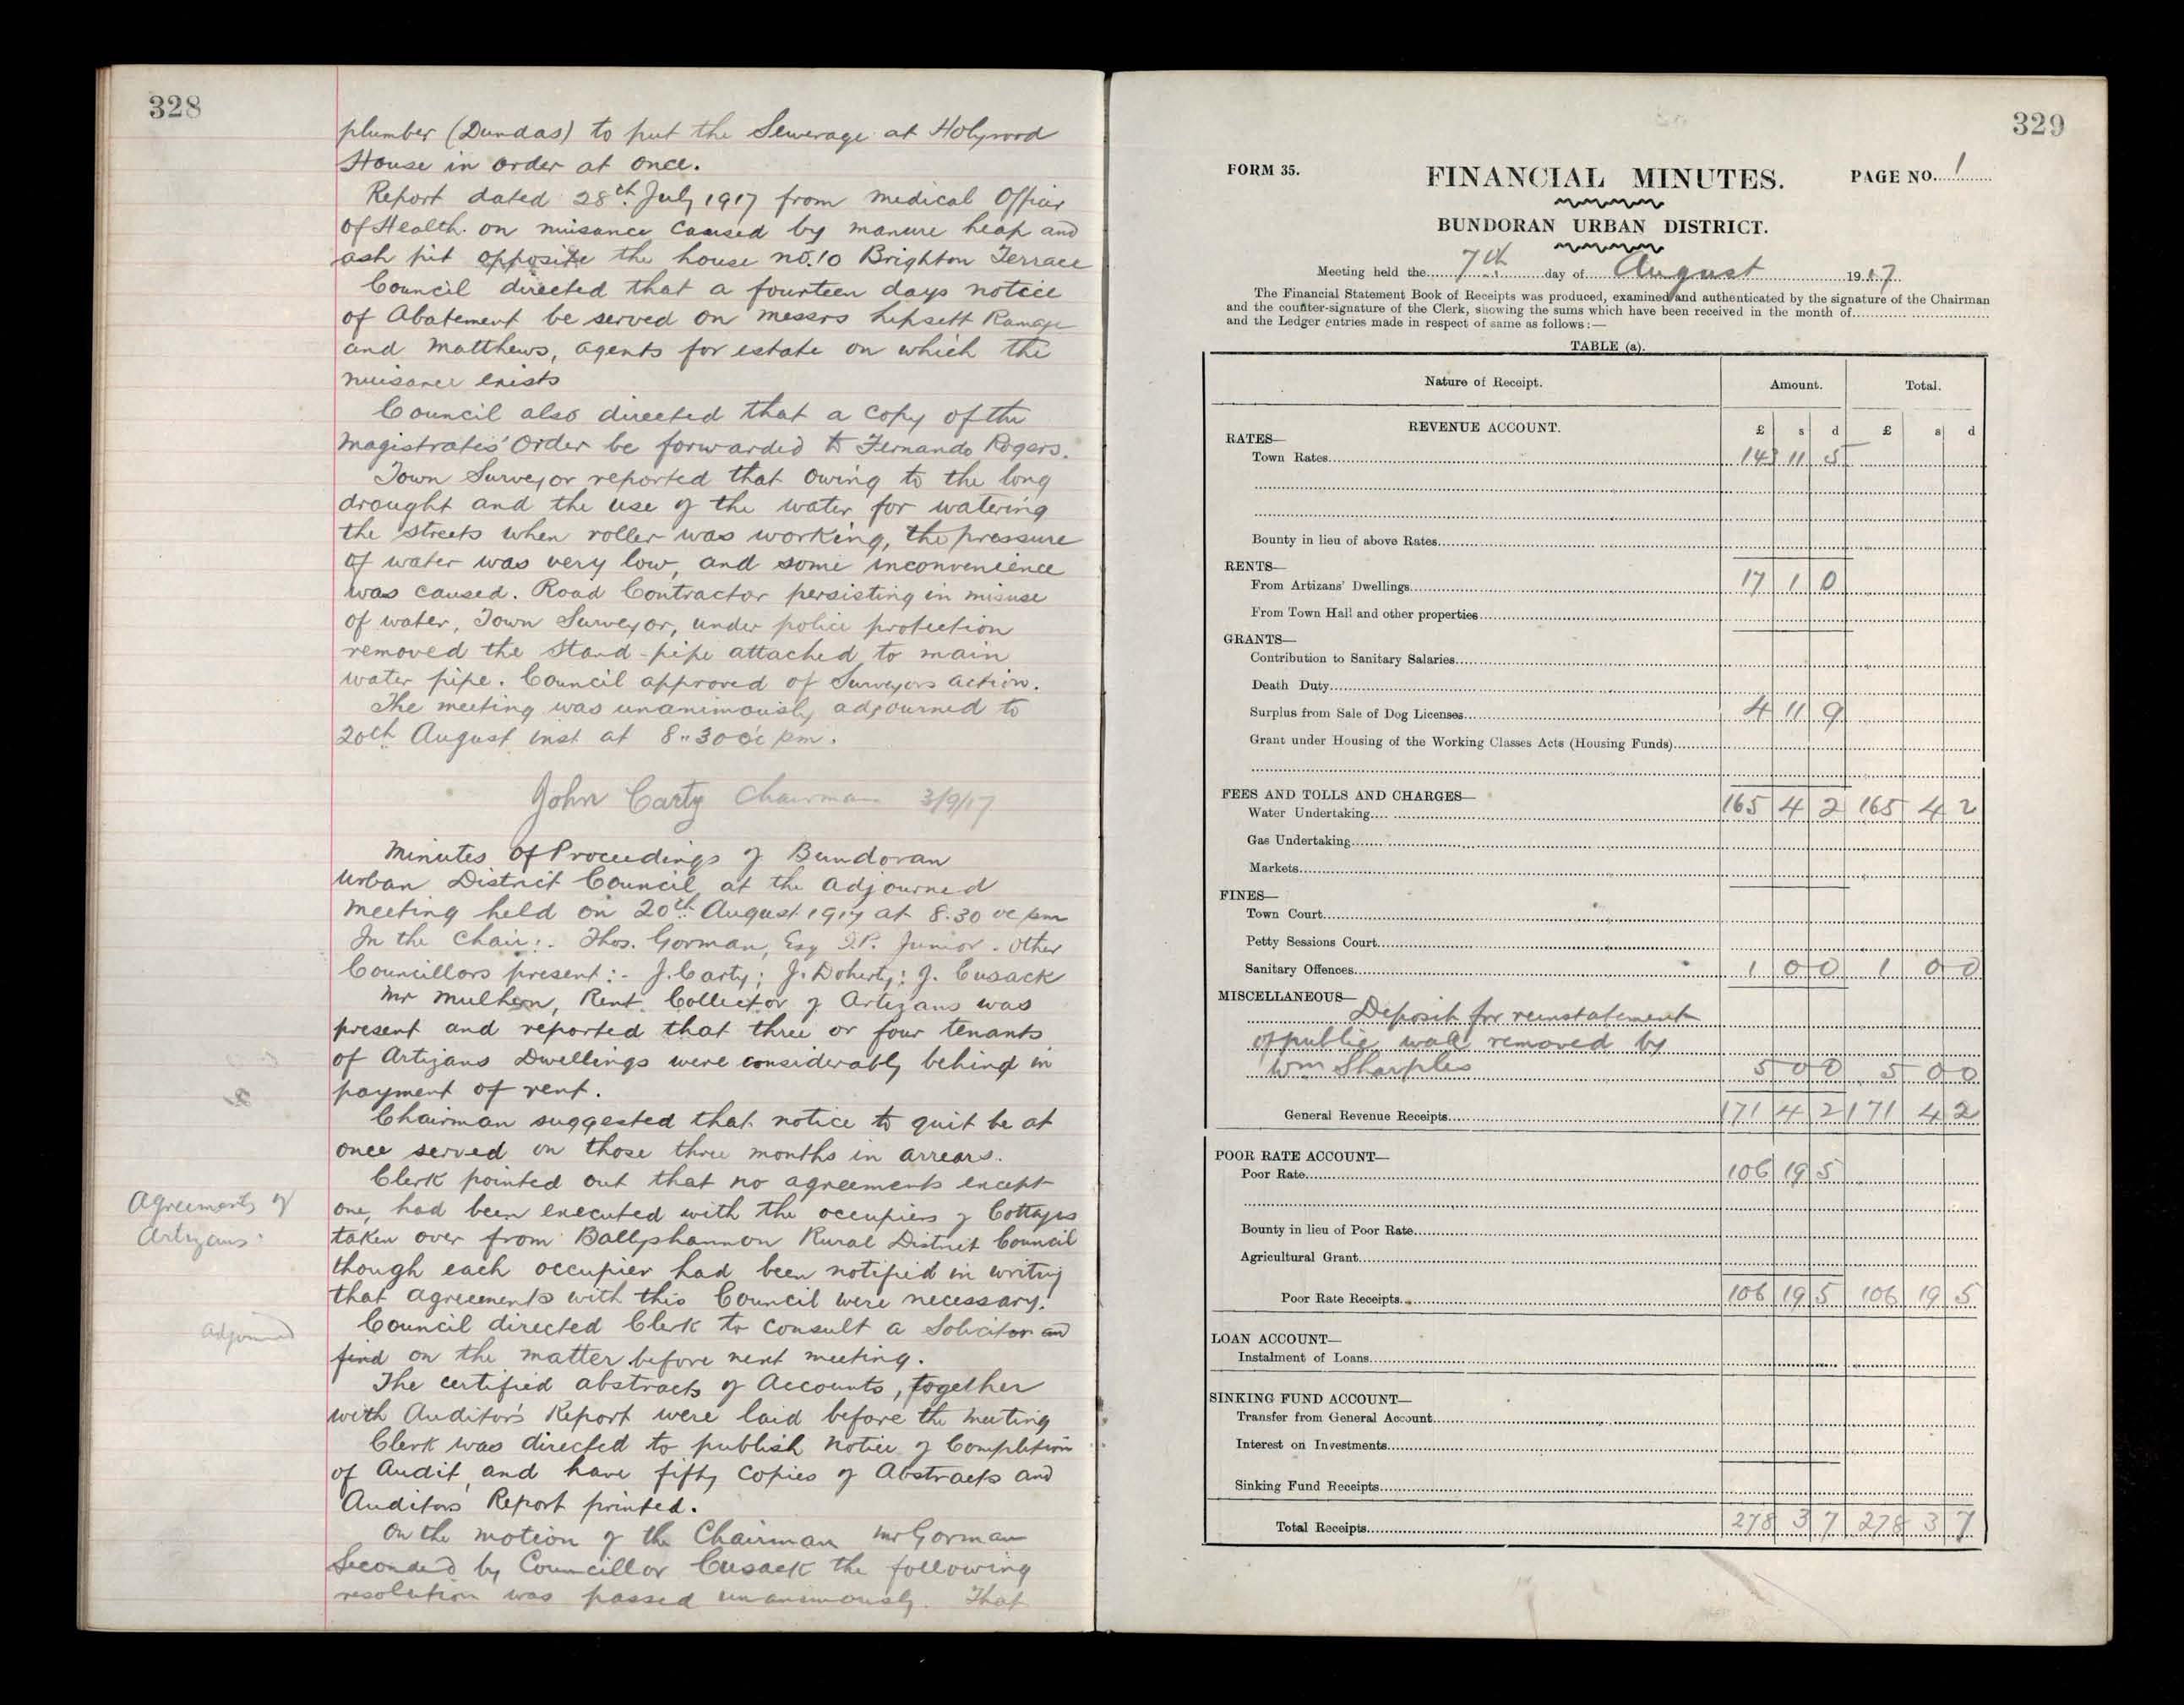 328
plumber (Dundas) to put the Sewerage at Holyrood
House in order at once.
Report dated 28th July 1917 from medical Officer
of Health on nuisance caused by manure heap and
ash pit opposite the house no. 10 Brighton Terrace
Council directed that a fourteen days notice
of Abatement be served on messrs Lipsett Ramage
and Matthews, agents for estate on which the
nuisance exists
Council also directed that a copy of the
Magistrates' Order be forwarded to Fernando Rogers.
Town Surveyor reported that owing to the long
drought and the use of the water for watering
the streets when roller was working, the pressure
of water was very low, and some inconvenience
was caused. Road Contractor persisting in misuse
of water, Town Surveyor, under police protection
removed the stand-pipe attached to main
water pipe. Council approved of Surveyors action.
The meeting was unanimously adjourned to
20th August inst at 8.30 oc pm.
John Carty Chairman 3/9/17
Minutes of Proceedings of Bundoran
Urban District Council at the adjourned
meeting held on 20th August 1917 at 8.30 oc pm
In the Chair:- Thos. Gorman, Esq J.P. Junior. Other
Councillors present:- J. Carty; J. Doherty; J. Cusack
Mr Mulhern, Rent Collector of Artizans was
present and reported that three or four tenants
of Artizans Dwellings were considerably behind in
payment of rent.
Chairman suggested that notice to quit be at
once served on those three months in arrears.
Clerk pointed out that no agreements except
Agreements of
Artizans
one, had been executed with the occupiers of Cottages
taken over from Ballyshannon Rural District Council
though each occupier had been notified in writing
that agreements with this Council were necessary.
adjourned
Council directed Clerk to consult a Solicitor and
find on the matter before next meeting.
The certified abstracts of Accounts, together
with Auditor's Report were laid before the meeting
Clerk was directed to publish notice of Completion
of Audit, and have fifty copies of Abstracts and
Auditors Report printed.
On the motion of the Chairman Mr Gorman
Seconded by Councillor Cusack the following
resolution was passed unanimously. That
329
FORM 35.
FINANCIAL MINUTES.
PAGE NO. 1
BUNDORAN URBAN DISTRICT.
Meeting held the 7th day of August 1917
The Financial Statement Book of Receipts was produced, examined and authenticated by the signature of the Chairman
and the counter-signature of the Clerk, showing the sums which have been received in the month of
and the Ledger entries made in respect of same as follows:—
TABLE (a).
Nature of Receipt. Amount. Total.
REVENUE ACCOUNT. £ s d £ s d
RATES—
Town Rates 143 11 5
Bounty in lieu of above Rates
RENTS—
From Artizans' Dwellings 17 1 0
From Town Hall and other properties
GRANTS—
Contribution to Sanitary Salaries
Death Duty
Surplus from Sale of Dog Licenses 4 11 9
Grant under Housing of the Working Classes Acts (Housing Funds)
FEES AND TOLLS AND CHARGES—
Water Undertaking 165 4 2 165 4 2
Gas Undertaking
Markets
FINES—
Town Court
Petty Sessions Court
Sanitary Offences 1 0 0 1 0 0
MISCELLANEOUS—
Deposit for reinstatement
of public wall removed by
Wm Sharples 5 0 0 5 0 0
General Revenue Receipts 171 4 2 171 4 2
POOR RATE ACCOUNT—
Poor Rate 106 19 5
Bounty in lieu of Poor Rate
Agricultural Grant
Poor Rate Receipts 106 19 5 106 19 5
LOAN ACCOUNT—
Instalment of Loans
SINKING FUND ACCOUNT—
Transfer from General Account
Interest on Investments
Sinking Fund Receipts
Total Receipts 278 3 7 278 3 7